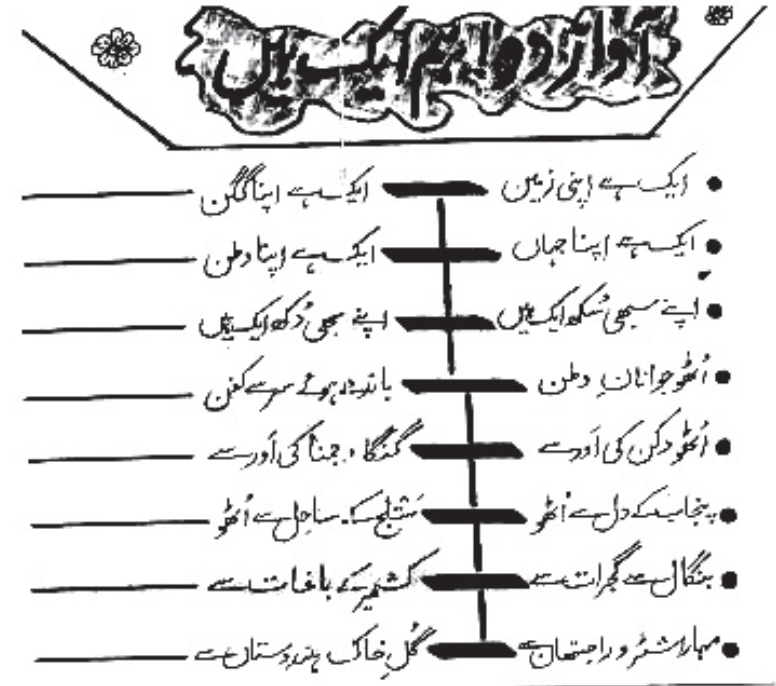 آواز دو! ہم ایک ہیں
ایک ہے اپنی زمین ایک ہے اپنا گگن
ایک ہے اپنا جہاں ایک ہے اپنا وطن
اپنے سبھی سُکھ ایک ہیں اپنے سبھی دُکھ ایک ہیں
اُٹھو جوانانِ وطن باندھے ہوئے سر سے کفن
اُٹھو دکن کی اَور سے گنگا و جمنا کی اَور سے
پنجاب کے دل سے اُٹھو سَتلج کے ساحل سے اُٹھو
بنگال سے گجرات سے کشمیر کے باغات سے
مہاراشٹر و راجستھان سے کُل خاکِ ہندوستان سے